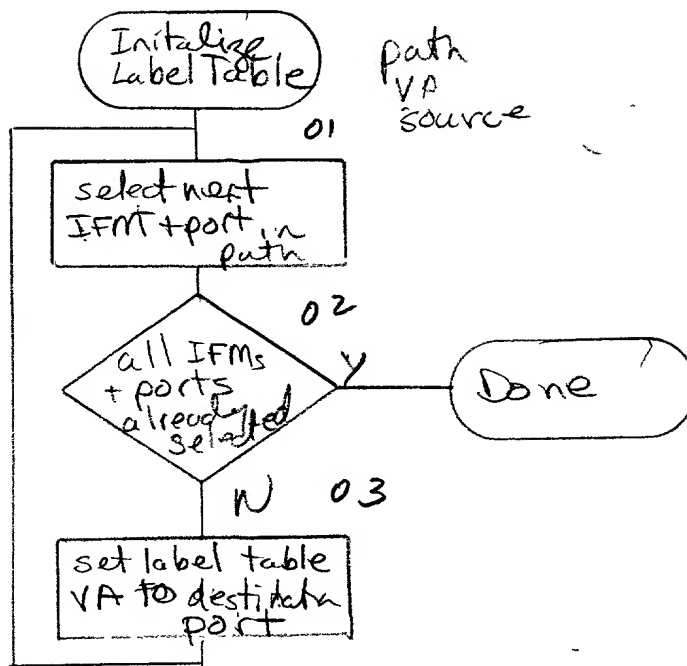 Initalize
Label Table
path
VA
source
01
select next
IFM + port in
path
02
all IFMs
+ ports
already
selected
Y
Done
N
03
set label table
VA TO destinatn
port